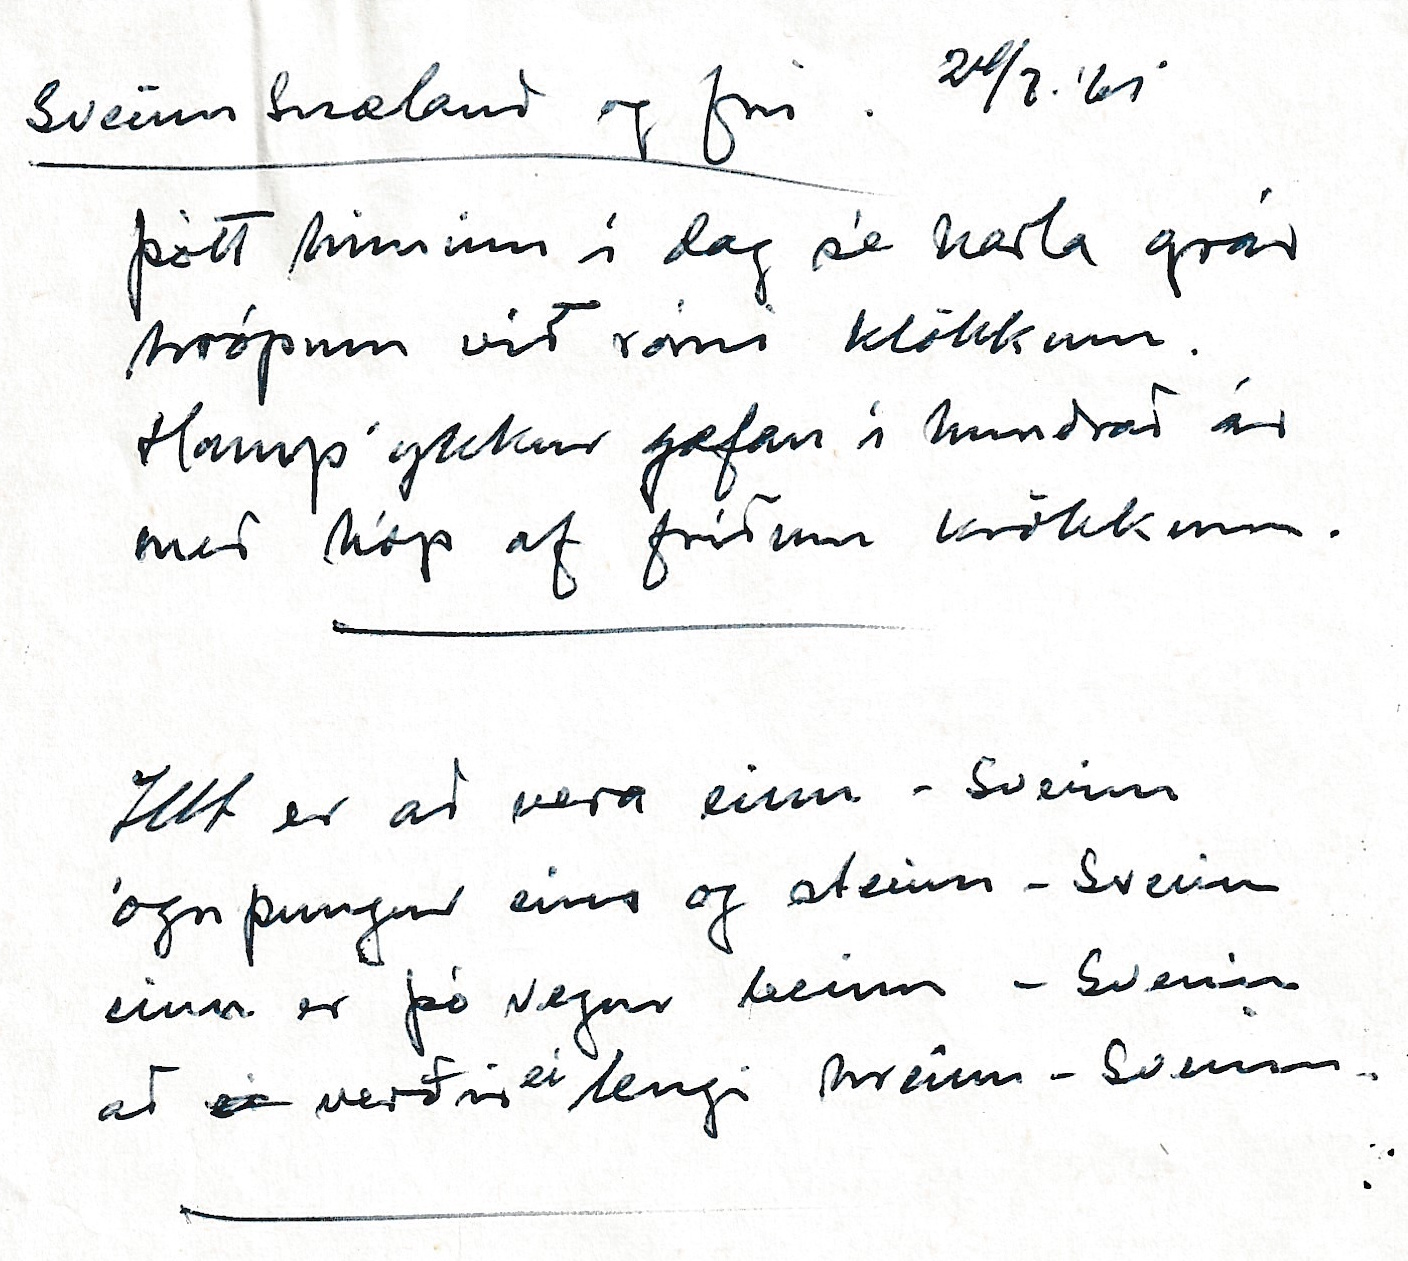 Sveinn Snæland og frú.
Þótt himinn í dag sé harla grár
hrópum við rómi klökkum.
Hamp' ykkur gæfan í hundrað ár
með hóp af fríðum krökkum.
Illt er að vera einn - Sveinn
ógn þungur eins og steinn - Sveinn
einn er þó vegur beinn - Sveinn
að verðir ei lengi hreinn - Sveinn.